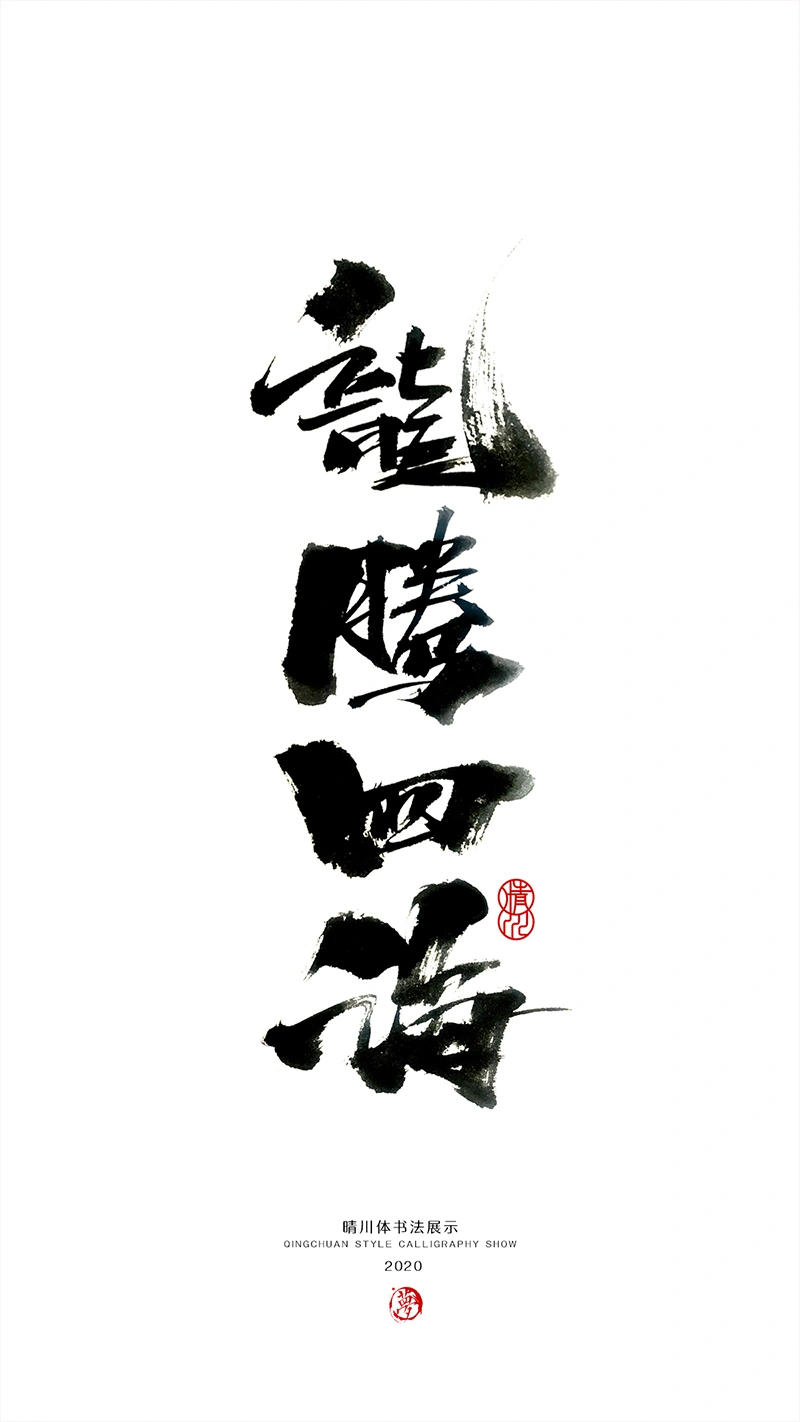 龍騰四海
晴川
晴川体书法展示
QINGCHUAN STYLE CALLIGRAPHY SHOW
2020
夢